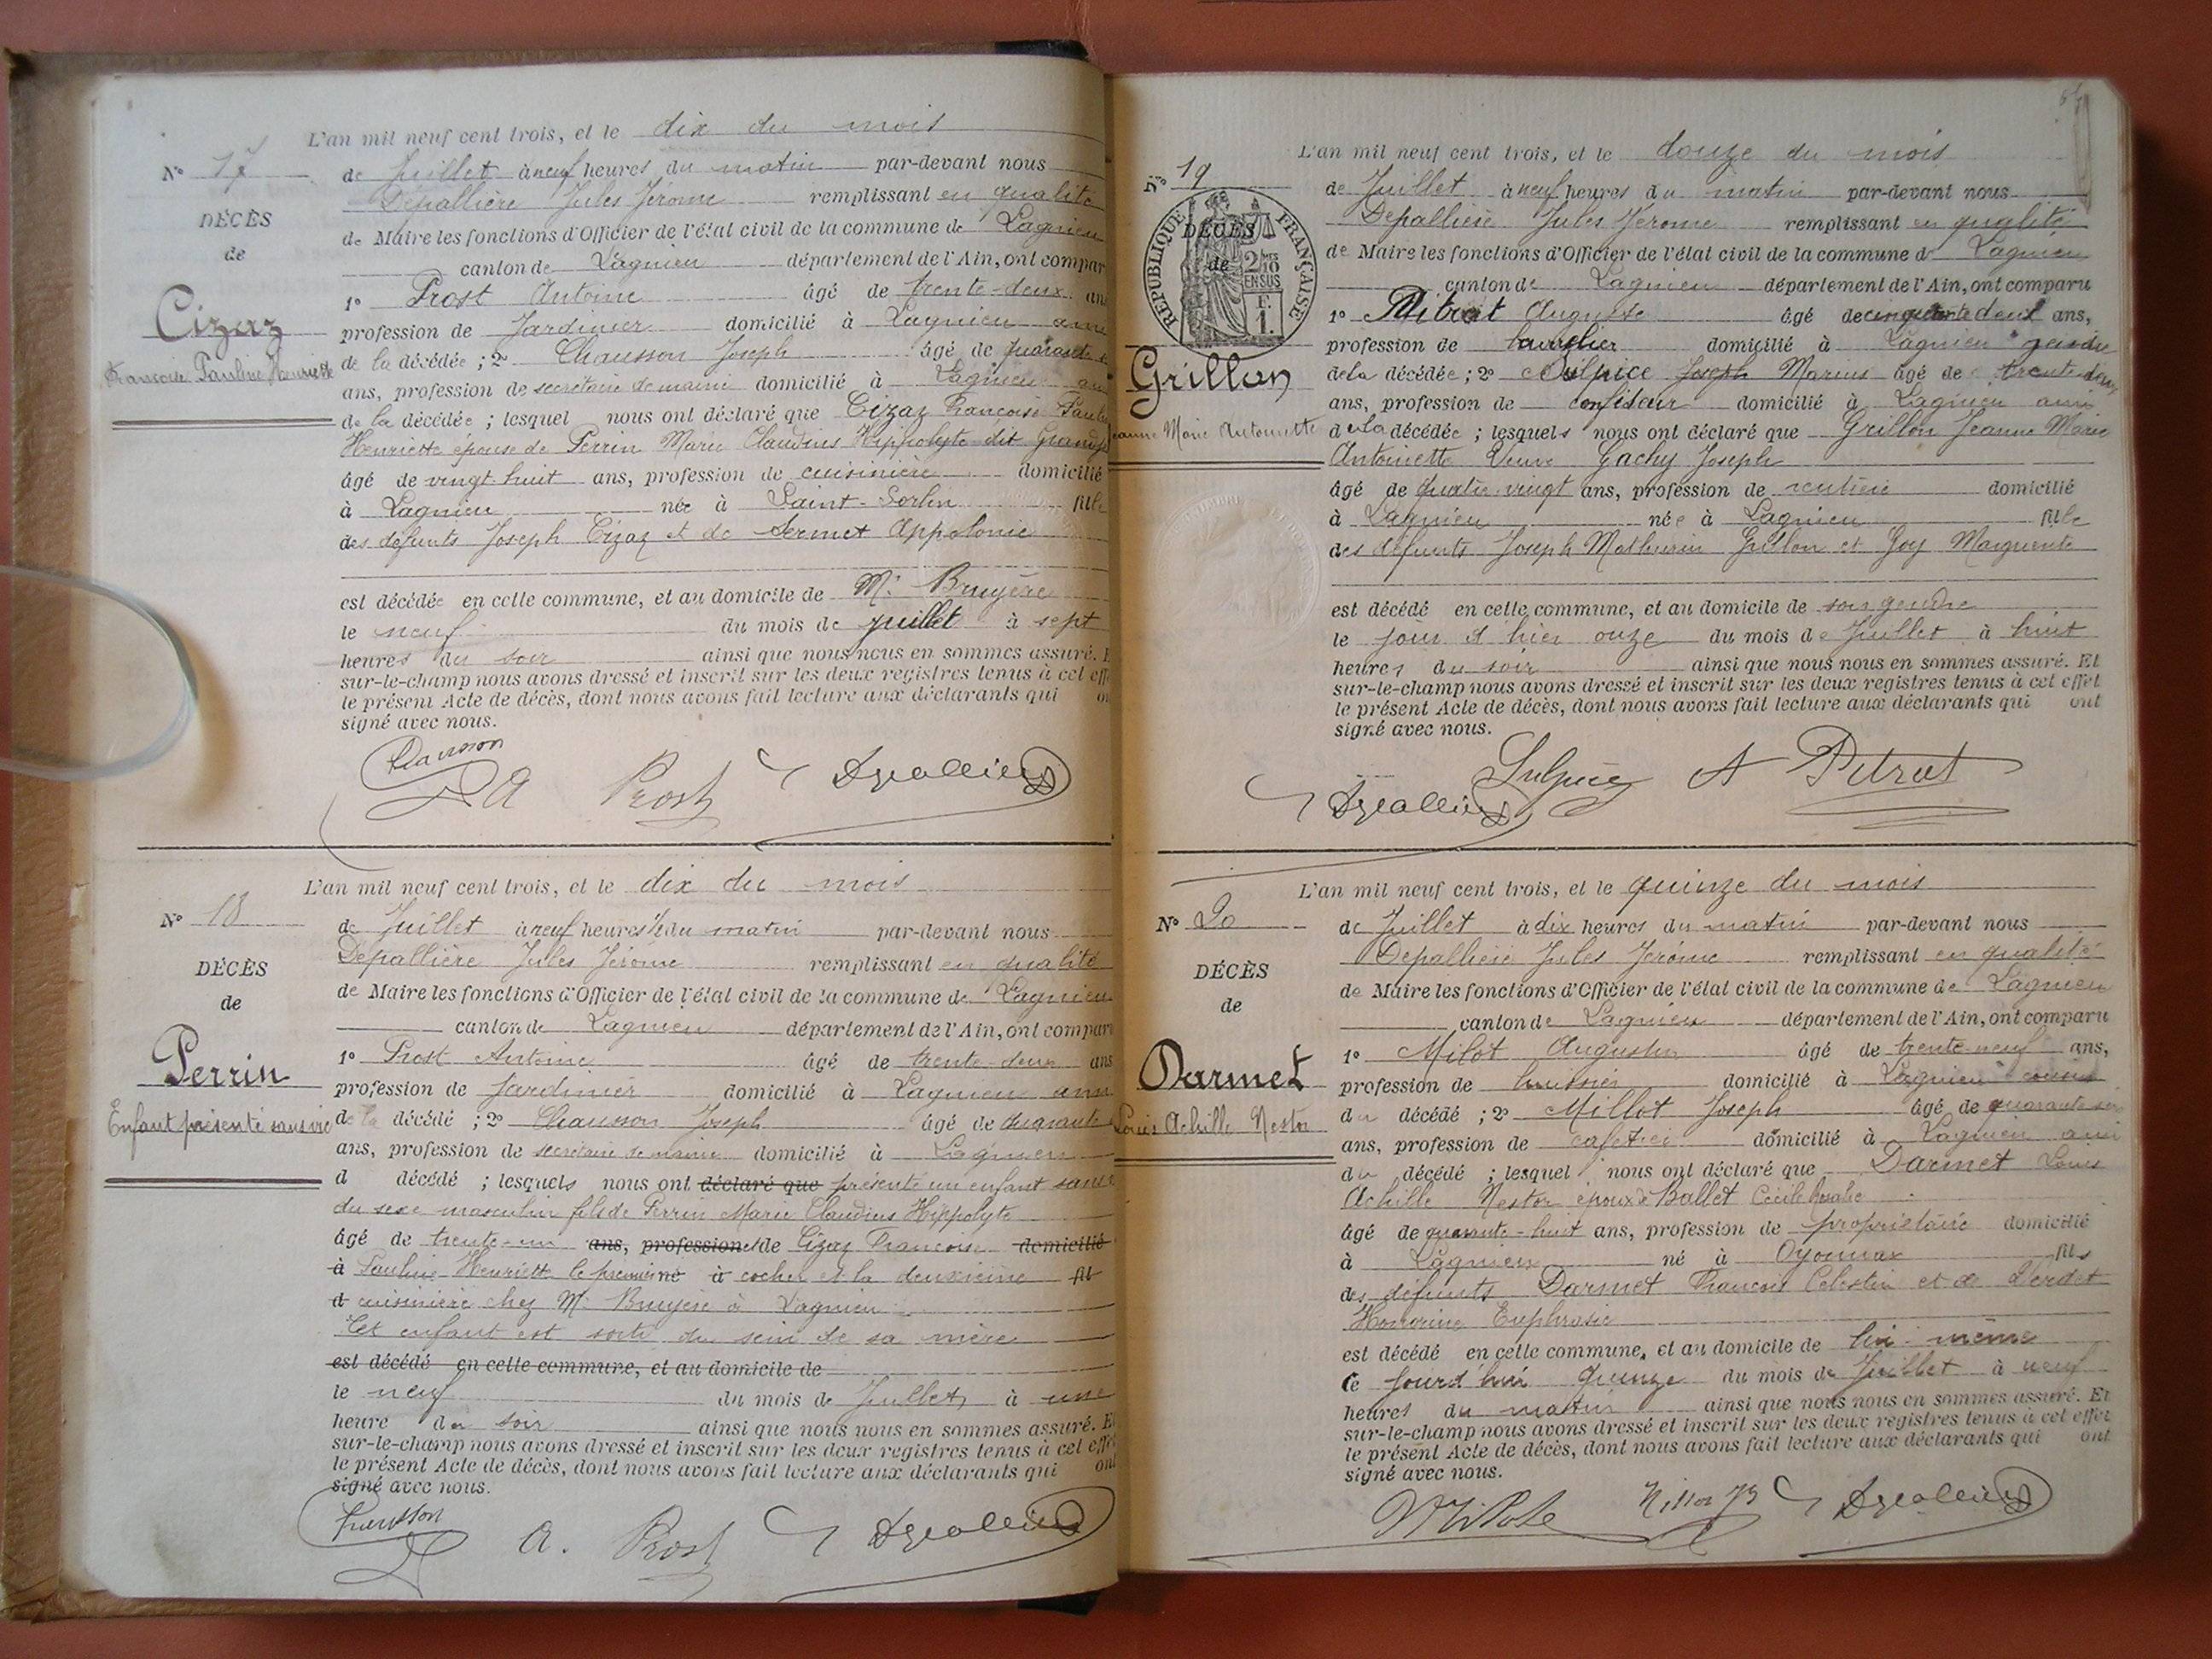 L'an mil neuf cent trois, et le dix du mois
N° 17
de Juillet à neuf heures du matin par-devant nous
Dépallière Jules Jérome remplissant en qualité
DÉCÈS
de Maire les fonctions d'Officier de l'état civil de la commune de Lagnieu
de
canton de Lagnieu département de l'Ain, ont compar
1° Prost Antoine âgé de trente-deux ans
Cizaz
profession de Jardinier domicilié à Lagnieu ami
Françoise Pauline Henriette
de la décédée ; 2° Chausson Joseph âgé de quarante
ans, profession de secrétaire de mairie domicilié à Lagnieu ami
de la décédée ; lesquel nous ont déclaré que Cizaz Françoise Pauline
Henriette épouse de Perrin Marie Claudius Hippolyte dit
âgé de vingt-huit ans, profession de cuisinière domicilié
à Lagnieu née à Saint-Sorlin fille
des défunts Joseph Cizaz et de Sermet Appolonie
est décédée en cette commune, et au domicile de Mr Bruyère
le neuf du mois de juillet à sept
heures du soir ainsi que nous nous en sommes assuré. E
sur-le-champ nous avons dressé et inscrit sur les deux registres tenus à cet eff
le présent Acte de décès, dont nous avons fait lecture aux déclarants qui on
signé avec nous.
Chausson
A Prost Depallière
L'an mil neuf cent trois, et le dix du mois
N° 18
de Juillet à neuf heures ½ du matin par-devant nous
Dépallière Jules Jérôme remplissant en qualité
DÉCÈS
de Maire les fonctions d'Officier de l'état civil de la commune de Lagnieu
de
canton de Lagnieu département de l'Ain, ont comparu
1° Prost Antoine âgé de trente-deux ans
Perrin
profession de Jardinier domicilié à Lagnieu ami
Enfant présenté sans vie
de la décédé ; 2° Chausson Joseph âgé de quarante
ans, profession de secrétaire de mairie domicilié à Lagnieu
d décédé ; lesquels nous ont déclaré que présenté un enfant sans
du sexe masculin fils de Perrin Marie Claudius Hippolyte
âgé de trente-un ans, profession et de Cizaz Françoise domicilié
à Pauline Henriette le premier né à cocher et la deuxième fil
d cuisinière chez Mr Bruyère à Lagnieu
Cet enfant est sorti du sein de sa mère
est décédé en cette commune, et au domicile de
le neuf du mois de Juillet à une
heure du soir ainsi que nous nous en sommes assuré. Et
sur-le-champ nous avons dressé et inscrit sur les deux registres tenus à cet effet
le présent Acte de décès, dont nous avons fait lecture aux déclarants qui ont
signé avec nous.
Chausson
A. Prost Depallière
L'an mil neuf cent trois, et le douze du mois
N° 19
de Juillet à neuf heures du matin par-devant nous
Depallière Jules Jérome remplissant en qualité
RÉPUBLIQUE FRANÇAISE
2 10 EN SUS
F. 1.
DÉCÈS
de
de Maire les fonctions d'Officier de l'état civil de la commune de Lagnieu
canton de Lagnieu département de l'Ain, ont comparu
1° Pitrat Auguste âgé de cinquante deux ans,
profession de domicilié à Lagnieu gendre
Grillon
de la décédée ; 2° Sulpice Joseph Marius âgé de trente deux
ans, profession de confiseur domicilié à Lagnieu ami
Jeanne Marie Antoinette
de la décédée ; lesquels nous ont déclaré que Grillon Jeanne Marie
Antoinette Veuve Gachy Joseph
âgé de quatre-vingt ans, profession de rentière domicilié
à Lagnieu née à Lagnieu fille
des défunts Joseph Mathurin Grillon et Goy Marguerite
est décédé en cette commune, et au domicile de son gendre
le jour d'hier onze du mois de Juillet à huit
heures du soir ainsi que nous nous en sommes assuré. Et
sur-le-champ nous avons dressé et inscrit sur les deux registres tenus à cet effet
le présent Acte de décès, dont nous avons fait lecture aux déclarants qui ont
signé avec nous.
Depallière Sulpice A Pitrat
L'an mil neuf cent trois, et le quinze du mois
N° 20
de Juillet à dix heures du matin par-devant nous
Dépallière Jules Jérôme remplissant en qualité
DÉCÈS
de Maire les fonctions d'Officier de l'état civil de la commune de Lagnieu
de
canton de Lagnieu département de l'Ain, ont comparu
1° Milot Augustin âgé de trente-neuf ans,
Darmet
profession de huissier domicilié à Lagnieu cousin
Louis Achille Nestor
du décédé ; 2° Millot Joseph âgé de quarante
ans, profession de cafetier domicilié à Lagnieu ami
du décédé ; lesquel nous ont déclaré que Darmet Louis
Achille Nestor époux de Ballet Cécile
âgé de quarante-huit ans, profession de propriétaire domicilié
à Lagnieu né à Oyonnax fils
des défunts Darmet François Célestin et de Verdet
Honorine Euphrasie
est décédé en cette commune, et au domicile de lui-même
Ce jourd'hui quinze du mois de Juillet à neuf
heures du matin ainsi que nous nous en sommes assuré. Et
sur-le-champ nous avons dressé et inscrit sur les deux registres tenus à cet effet
le présent Acte de décès, dont nous avons fait lecture aux déclarants qui ont
signé avec nous.
Depallière